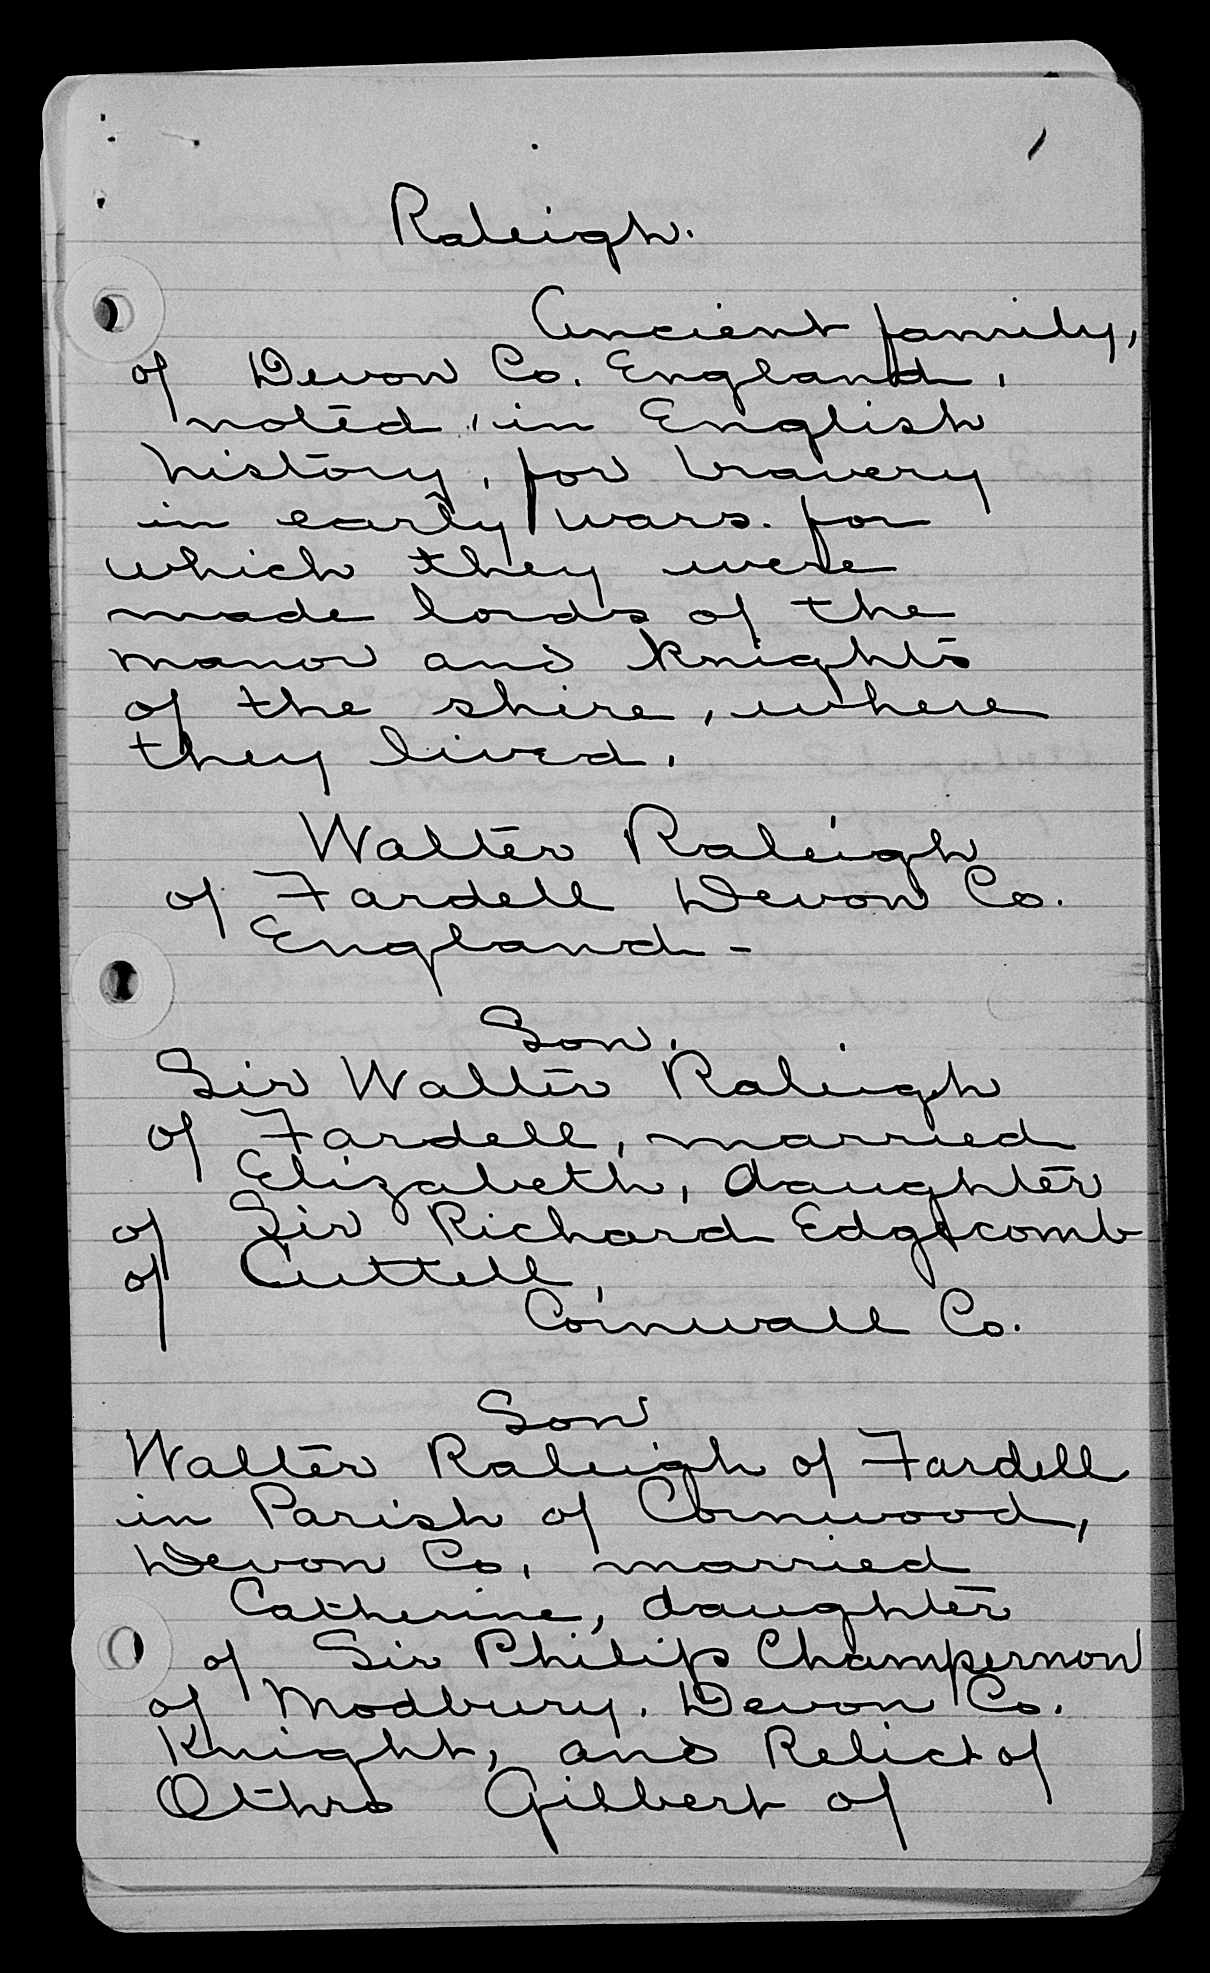 Raleigh.
Ancient family,
of Devon Co. England,
noted, in English
history, for bravery
in early wars. for
which they were
made lords of the
manor and knights
of the shire, where
they lived.
Walter Raleigh
of Fardell Devon Co.
England -
Son.
Sir Walter Raleigh
of Fardell, married
Elizabeth, daughter
of Sir Richard Edgecomb
of Cuttell,
Cornwall Co.
Son
Walter Raleigh of Fardell
in Parish of Cornwood,
Devon Co, married
Catherine, daughter
of Sir Philip Champernon
of Modbury, Devon Co.
Knight, and Relict of
Otho Gilbert of